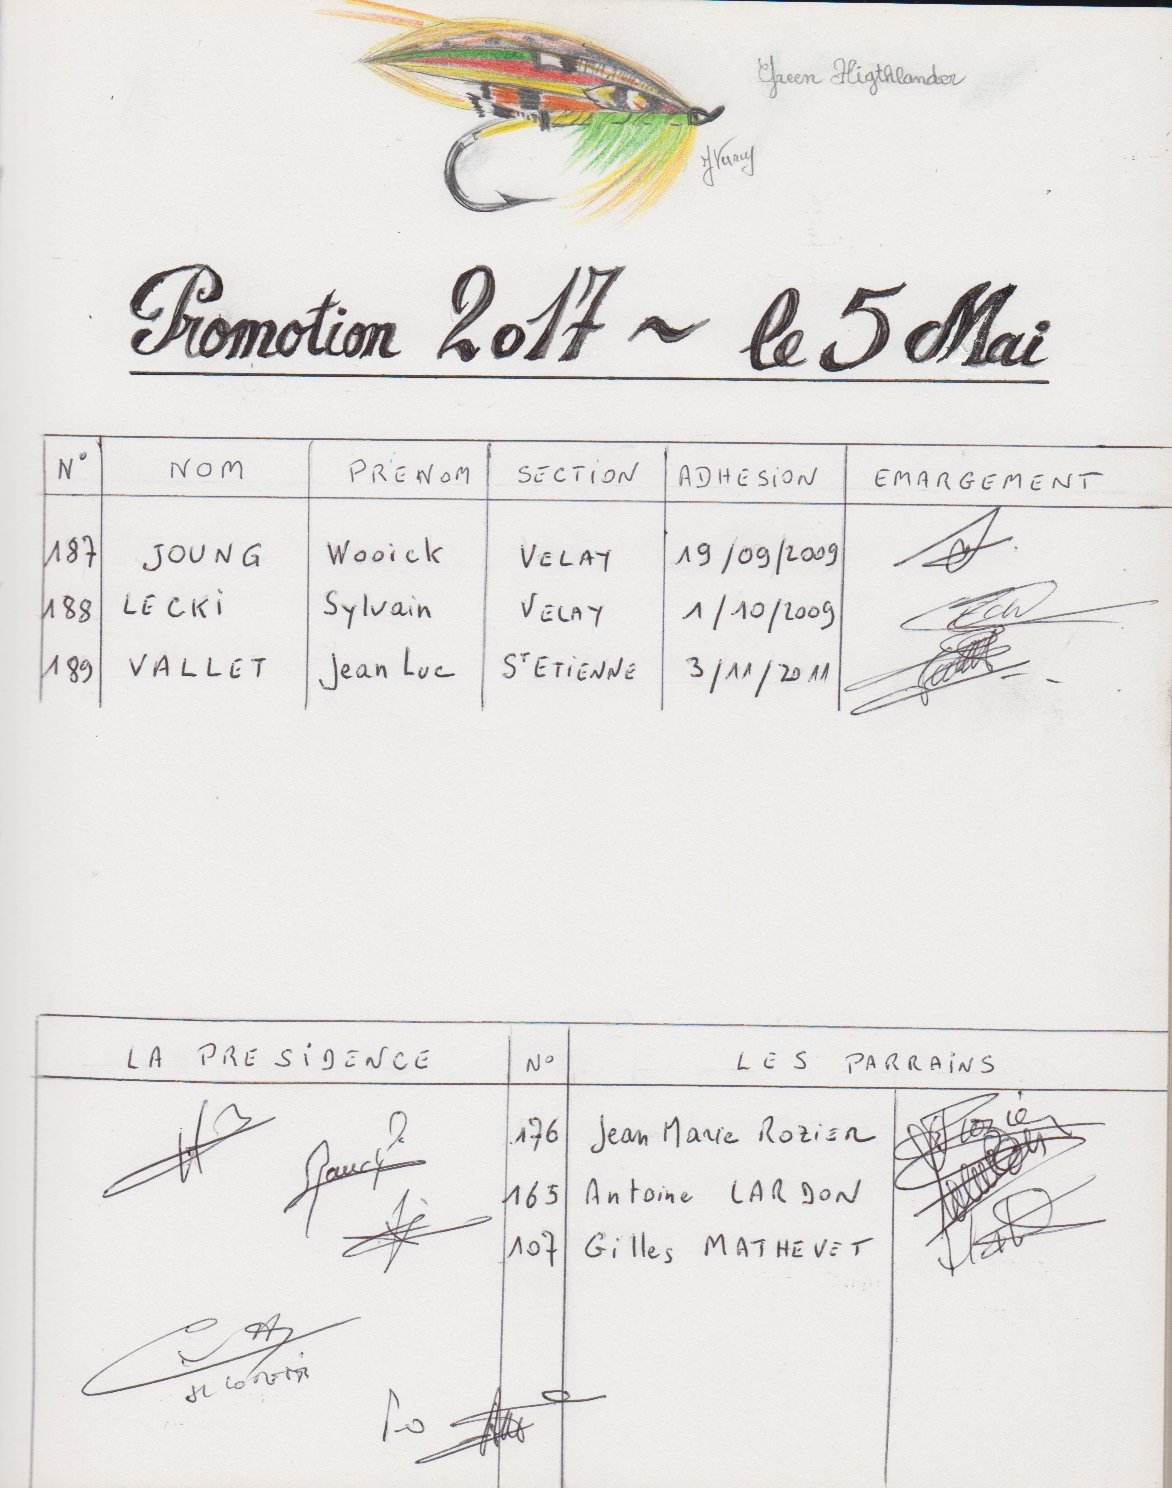 Green Higthlander
Promotion 2017 ~ le 5 Mai
N° NOM PRENOM SECTION ADHESION EMARGEMENT
187 JOUNG Wooick VELAY 19/09/2009
188 LECKI Sylvain VELAY 1/10/2009
189 VALLET Jean Luc ST ETIENNE 3/11/2011
LA PRESIDENCE N° LES PARRAINS
176 Jean Marie ROZIER
165 Antoine LARDON
107 Gilles MATHEVET